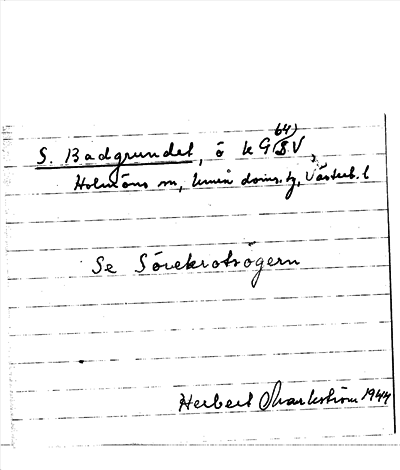 64)
S. Badgrundet, ö k G S V,
Holmöns sn, Umeå doms. tg, Västerb. l
Se Sörekrotsögern
Herbert Markström 1944